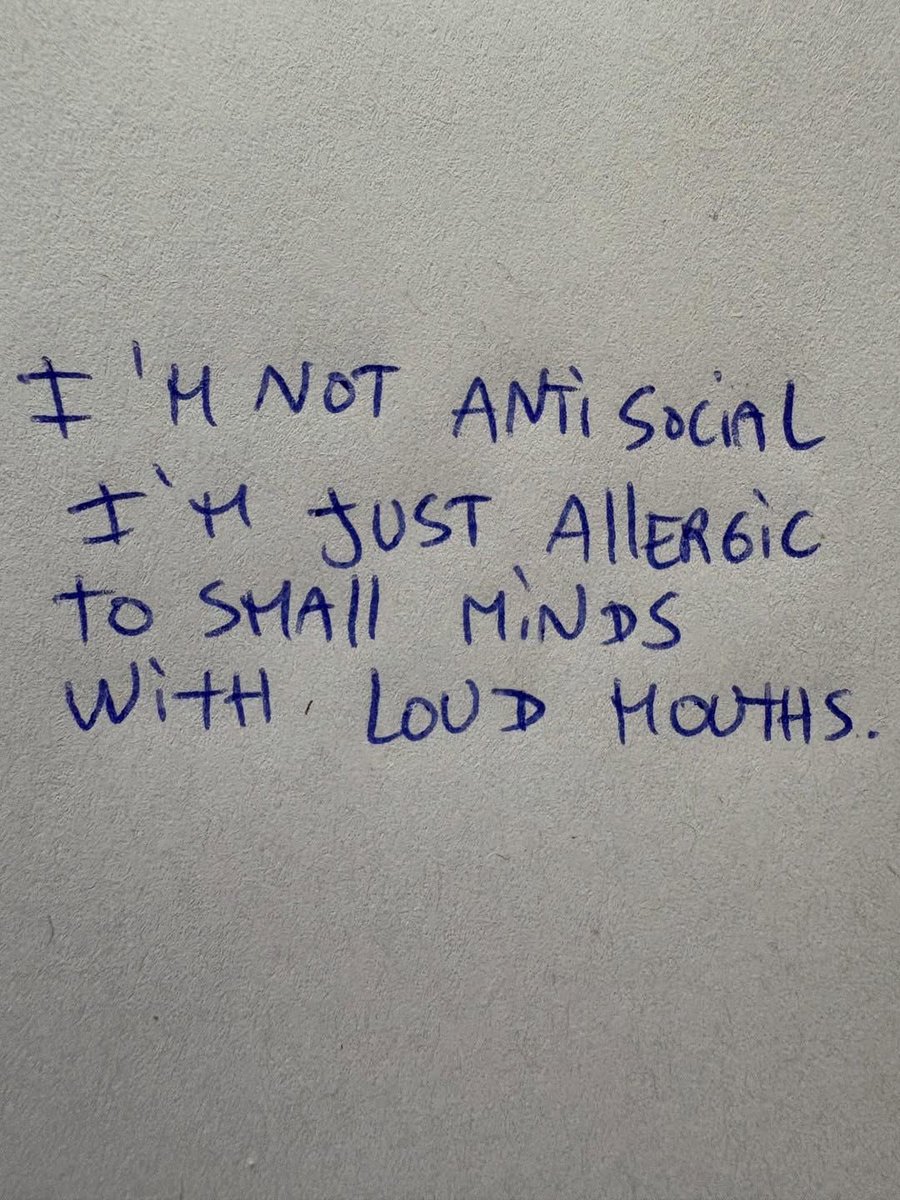 I'M NOT ANTi SOCiAL
I'M JUST AllERGiC
TO SMAll MiNDS
WiTH LOUD MOUTHS.